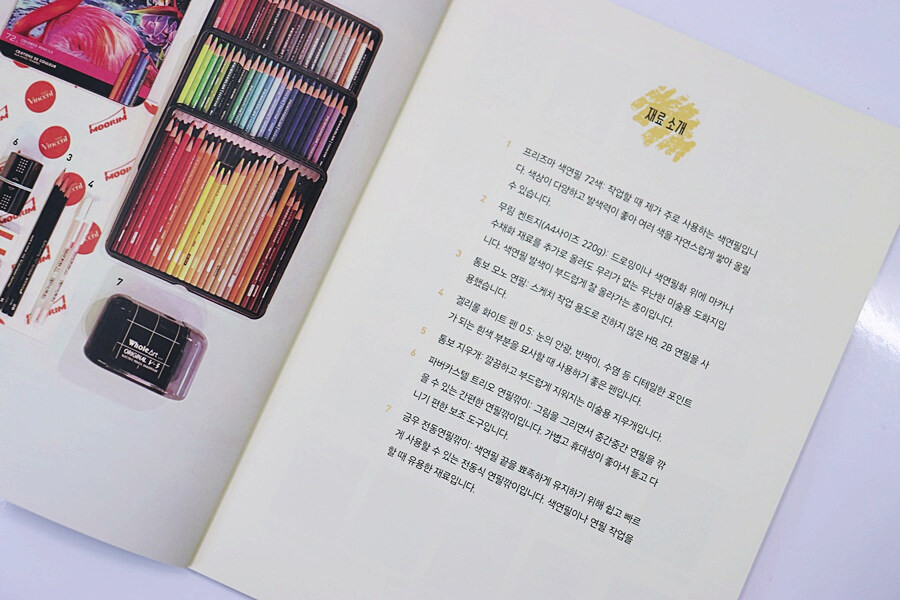 72
CRAYONS DE COULEUR
Vincent
MOORIM
Vincent
MOORIM
MOORIM
6
3
4
7
Whole Art
ORIGINAL
재료 소개
1 프리즈마 색연필 72색: 작업할 때 제가 주로 사용하는 색연필입니
다. 색상이 다양하고 발색력이 좋아 여러 색을 자연스럽게 쌓아 올릴
수 있습니다.
2 무림 켄트지(A4사이즈 220g): 드로잉이나 색연필화 위에 마카나
수채화 재료를 추가로 올려도 무리가 없는 무난한 미술용 도화지입
니다. 색연필 발색이 부드럽게 잘 올라가는 종이입니다.
3 톰보 모노 연필: 스케치 작업 용도로 진하지 않은 HB, 2B 연필을 사
용했습니다.
4 겔리롤 화이트 펜 0.5: 눈의 안광, 반짝이, 수염 등 디테일한 포인트
가 되는 흰색 부분을 묘사할 때 사용하기 좋은 펜입니다.
5 톰보 지우개: 깔끔하고 부드럽게 지워지는 미술용 지우개입니다.
6 파버카스텔 트리오 연필깎이: 그림을 그리면서 중간중간 연필을 깎
을 수 있는 간편한 연필깎이입니다. 가볍고 휴대성이 좋아서 들고 다
니기 편한 보조 도구입니다.
7 금우 전동연필깎이: 색연필 끝을 뾰족하게 유지하기 위해 쉽고 빠르
게 사용할 수 있는 전동식 연필깎이입니다. 색연필이나 연필 작업을
할 때 유용한 재료입니다.